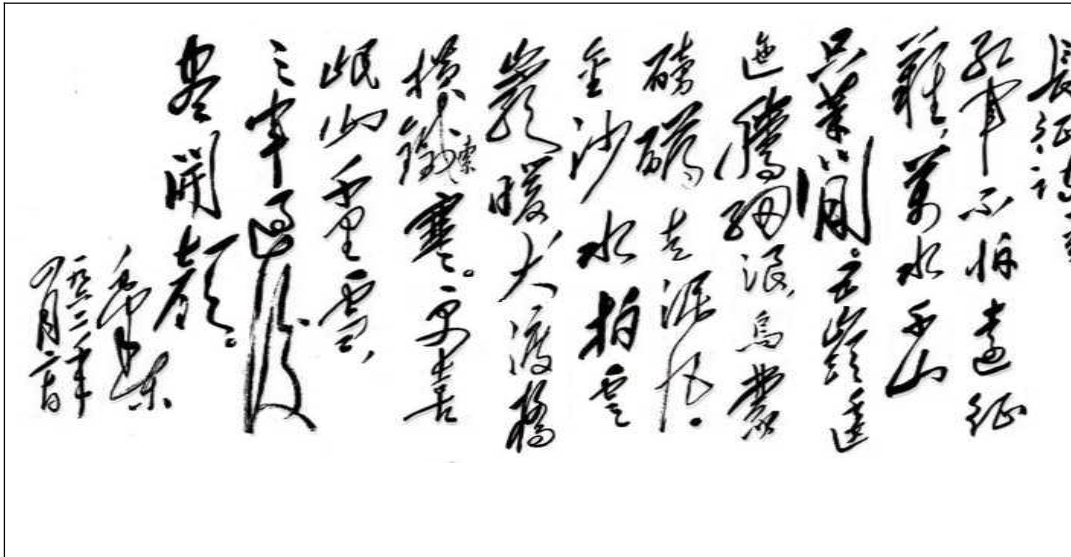 長征詩
红軍不怕遠征
難,萬水千山
只等閒。五嶺逶
迤騰細浪,烏蒙
磅礴走泥丸。
金沙水拍雲
巖暖大渡橋
横鐵索寒。更喜
岷山千里雪,
三軍過後
盡開顏。
毛澤东
一九六二年
四月